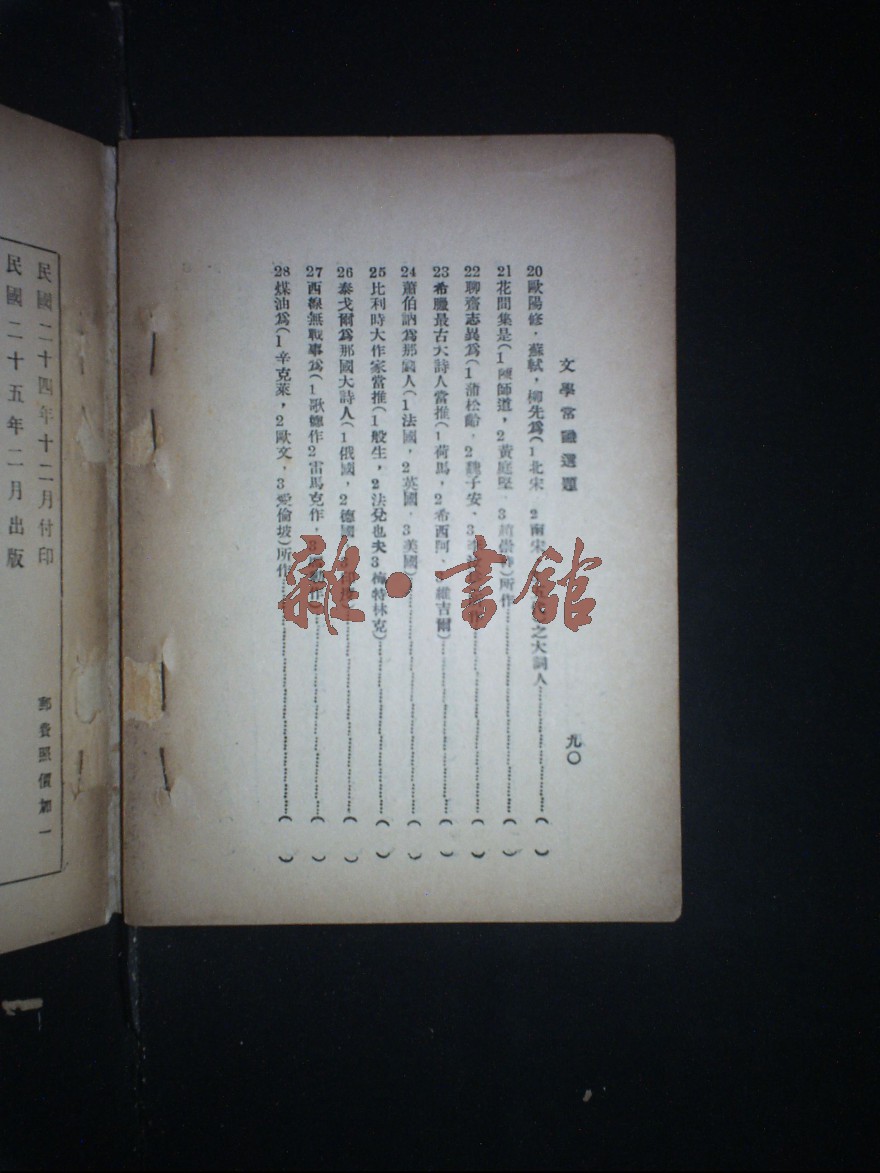 文學常識選題
九〇
20歐陽修，蘇軾，柳先爲(1北宋 2南宋 之大詞人……( )
21花間集是(1陳師道，2黃庭堅，3趙崇祚)所作……( )
22聊齋志異爲(1蒲松齡，2魏子安，3……( )
23希臘最古大詩人當推(1荷馬，2希西阿，3維吉爾)……( )
24蕭伯訥爲那國人(1法國，2英國，3美國)……( )
25比利時大作家當推(1般生，2法兌也夫3梅特林克)……( )
26泰戈爾爲那國大詩人(1俄國，2德國，3印度)……( )
27西線無戰事爲(1歌德作2雷馬克作，3 作)……( )
28煤油爲(1辛克萊，2歐文，3愛倫坡)所作……( )
雜·書館
民國二十四年十二月付印
民國二十五年二月出版
郵費照價加一